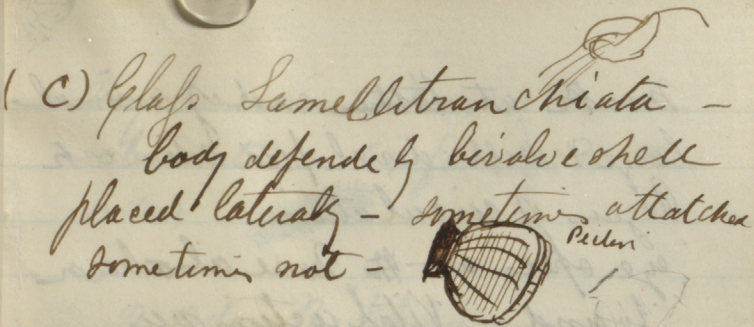 (C) Class Lamellibranchiata –
body defended by bivalve shell
placed laterally – sometimes attatched
sometimes not –
Pecten